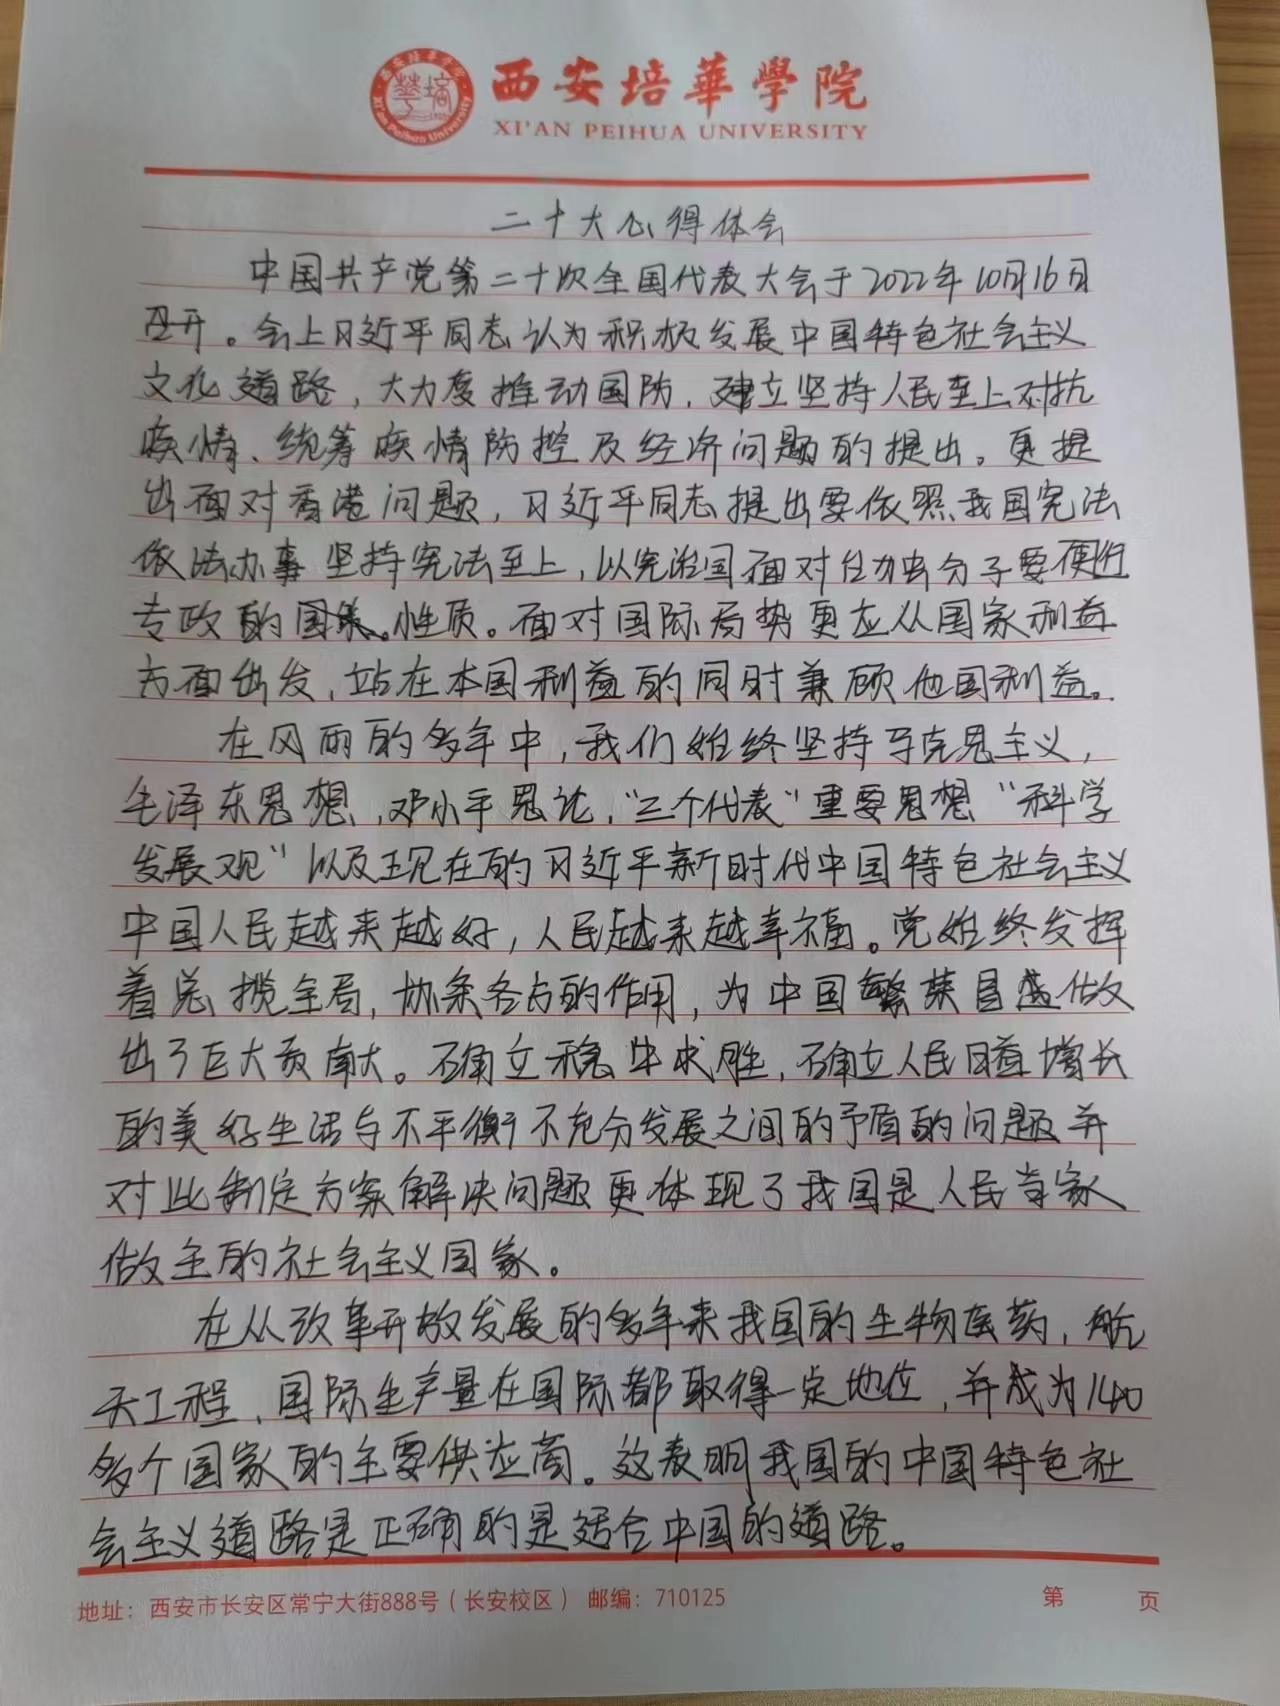 西安培華學院
XI'AN PEIHUA UNIVERSITY
二十大心得体会
中国共产党第二十次全国代表大会于2022年10月16日
召开。会上习近平同志认为积极发展中国特色社会主义
文化道路,大力度推动国防,建立坚持人民至上对抗
疾情、统筹疾情防控及经济问题的提出。更提
出面对香港问题,习近平同志提出要依照我国宪法
依法办事坚持宪法至上,以宪治国面对台独分子要使
专政的国家。性质。面对国际局势更应从国家利益
方面出发,站在本国利益的同时兼顾他国利益。
在风雨的多年中,我们始终坚持马克思主义,
毛泽东思想,邓小平思论,“三个代表”重要思想“科学
发展观”以及现在的习近平新时代中国特色社会主义
中国人民越来越好,人民越来越幸福。党始终发挥
着总揽全局,协条各方的作用,为中国繁荣昌盛做
出了巨大贡献。确立稳中求胜,确立人民日益增长
的美好生活与不平衡不充分发展之间的矛盾的问题并
对此制定方案解决问题更体现了我国是人民当家
做主的社会主义国家。
在从改革开放发展的多年来我国的生物医药,航
天工程、国际生产量在国际都取得一定地位,并成为140
多个国家的主要供应商。这表明我国的中国特色社
会主义道路是正确的是适合中国的道路。
地址：西安市长安区常宁大街888号（长安校区） 邮编：710125 第 页